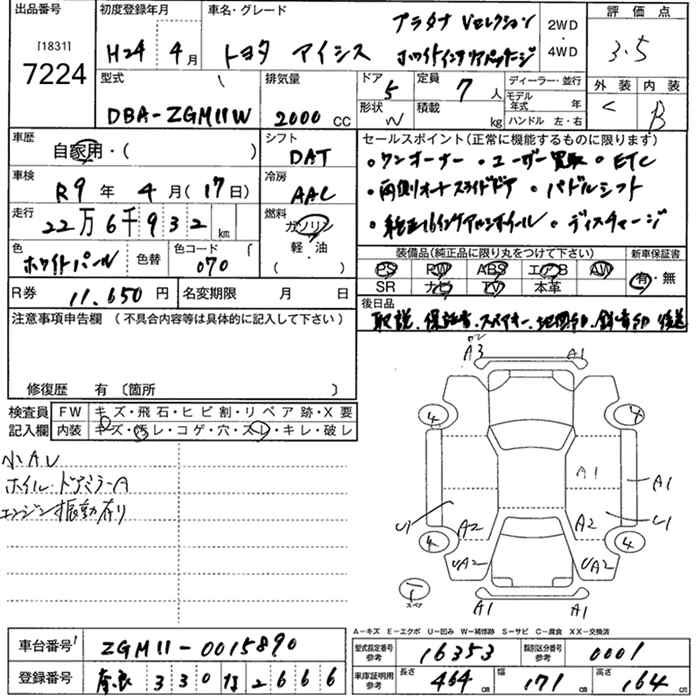 出品番号 初度登録年月 車名・グレード 評価点
[1831] 7224 H24 4月 トヨタ アイシス プラタナ Vセレクション ホワイトインテリアパッケージ 2WD・4WD 3.5
型式 DBA-ZGM11W 排気量 2000 CC ドア 5 形状 W 定員 7人 積載 kg ディーラー・並行 モデル年式 年 ハンドル 左・右 外装 C 内装 B
車歴 自家用・( ) シフト DAT セールスポイント(正常に機能するものに限ります)
・ワンオーナー ・ユーザー買取 ・ETC
車検 R9年 4月(17日) 冷房 AAC ・両側オートスライドドア ・パドルシフト
走行 22万6千932 km 燃料 ガソリン 軽・油 ( ) ・純正16インチアルミホイール ・ディスチャージ
色 ホワイトパール 色替 色コード 070 装備品(純正品に限り丸をつけて下さい) 新車保証書
PS PW ABS エアB AW 有・無
SR ナビ TV 本革
R券 11.650円 名変期限 月 日 後日品
注意事項申告欄 (不具合内容等は具体的に記入して下さい) 取説、保証書、スペアキー、地図SD、録音SD 後送
修復歴 有 〔箇所 〕
検査員記入欄 FW キズ・飛石・ヒビ割・リペア跡・X要
内装 キズ・汚レ・コゲ・穴・スレ・キレ・破レ
小AU
ホイル・ドアミラーA
エンジン振動有り
A3 A1
4 4
A1 A1
U A2 A2 U
4 UA2 UA2 4
スペア A1 A1
A-キズ E-エクボ U-凹み W-補修跡 S-サビ C-腐食 XX-交換済
車台番号 ZGM11-0015890 型式指定番号 参考 16353 類別区分番号 参考 0001
登録番号 奈良 330 な 2666 車庫証明用 参考 長さ 464 cm 幅 171 cm 高さ 164 cm